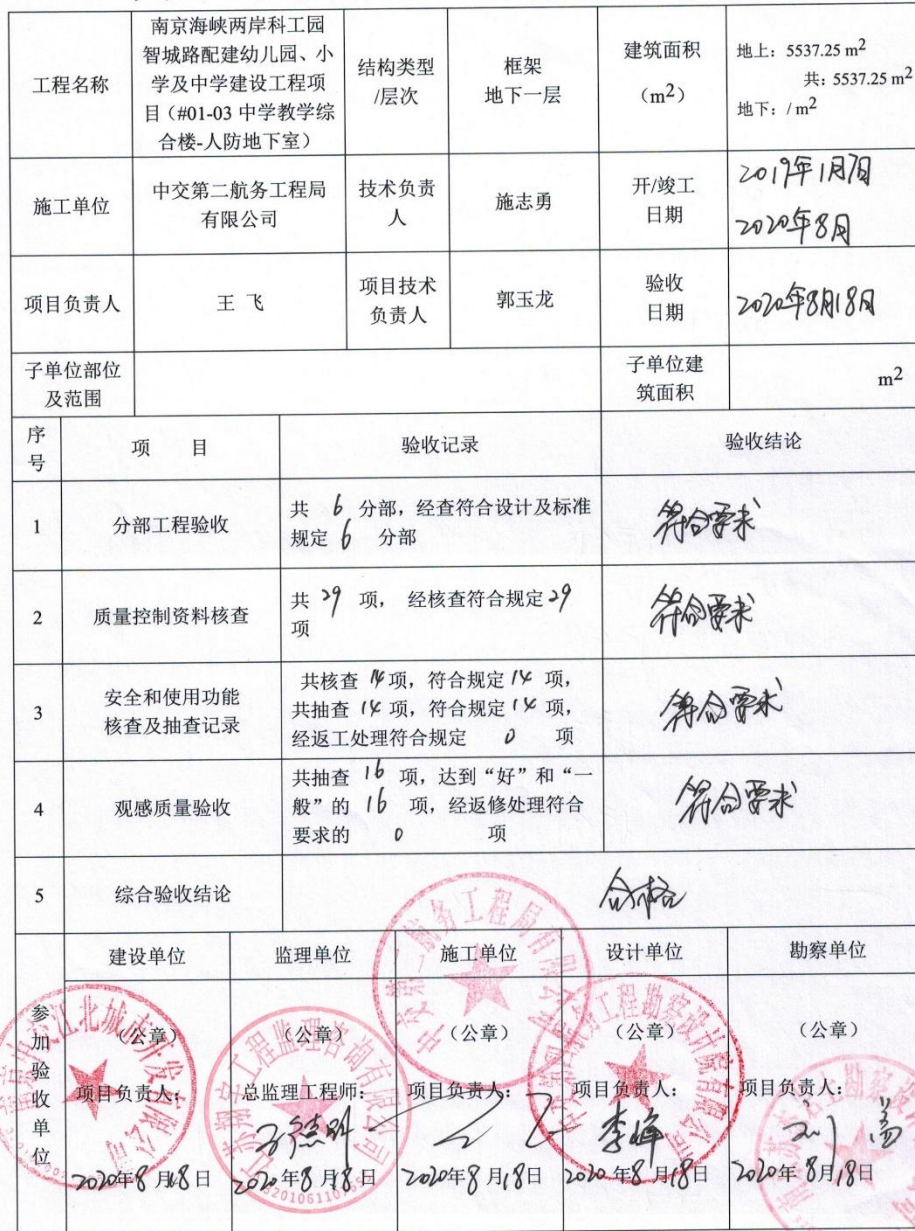 工程名称
南京海峡两岸科工园
智城路配建幼儿园、小
学及中学建设工程项
目(#01-03 中学教学综
合楼-人防地下室)
结构类型
/层次
框架
地下一层
建筑面积
(m²)
地上: 5537.25 m²
共: 5537.25 m²
地下: / m²
施工单位
中交第二航务工程局
有限公司
技术负责
人
施志勇
开/竣工
日期
2019年1月
2020年8月
项目负责人
王 飞
项目技术
负责人
郭玉龙
验收
日期
2020年8月18日
子单位部位
及范围
子单位建
筑面积
m²
序
号
项 目
验收记录
验收结论
1
分部工程验收
共 6 分部，经查符合设计及标准
规定 6 分部
符合要求
2
质量控制资料核查
共 29 项， 经核查符合规定 29
项
符合要求
3
安全和使用功能
核查及抽查记录
共核查 14 项，符合规定 14 项，
共抽查 14 项，符合规定 14 项，
经返工处理符合规定 0 项
符合要求
4
观感质量验收
共抽查 16 项，达到“好”和“一
般”的 16 项，经返修处理符合
要求的 0 项
符合要求
5
综合验收结论
合格
参
加
验
收
单
位
建设单位
监理单位
施工单位
设计单位
勘察单位
(公章)
(公章)
(公章)
(公章)
(公章)
项目负责人:
总监理工程师:
项目负责人:
项目负责人:
项目负责人:
李峰
2020年8月18日
2020年8月18日
2020年8月18日
2020年8月18日
2020年8月18日